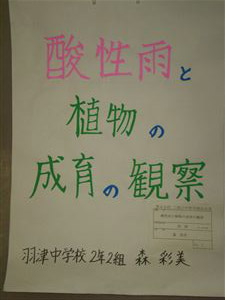 酸性雨と
植物の
成育の観察
羽津中学校 2年2組 森 彩美